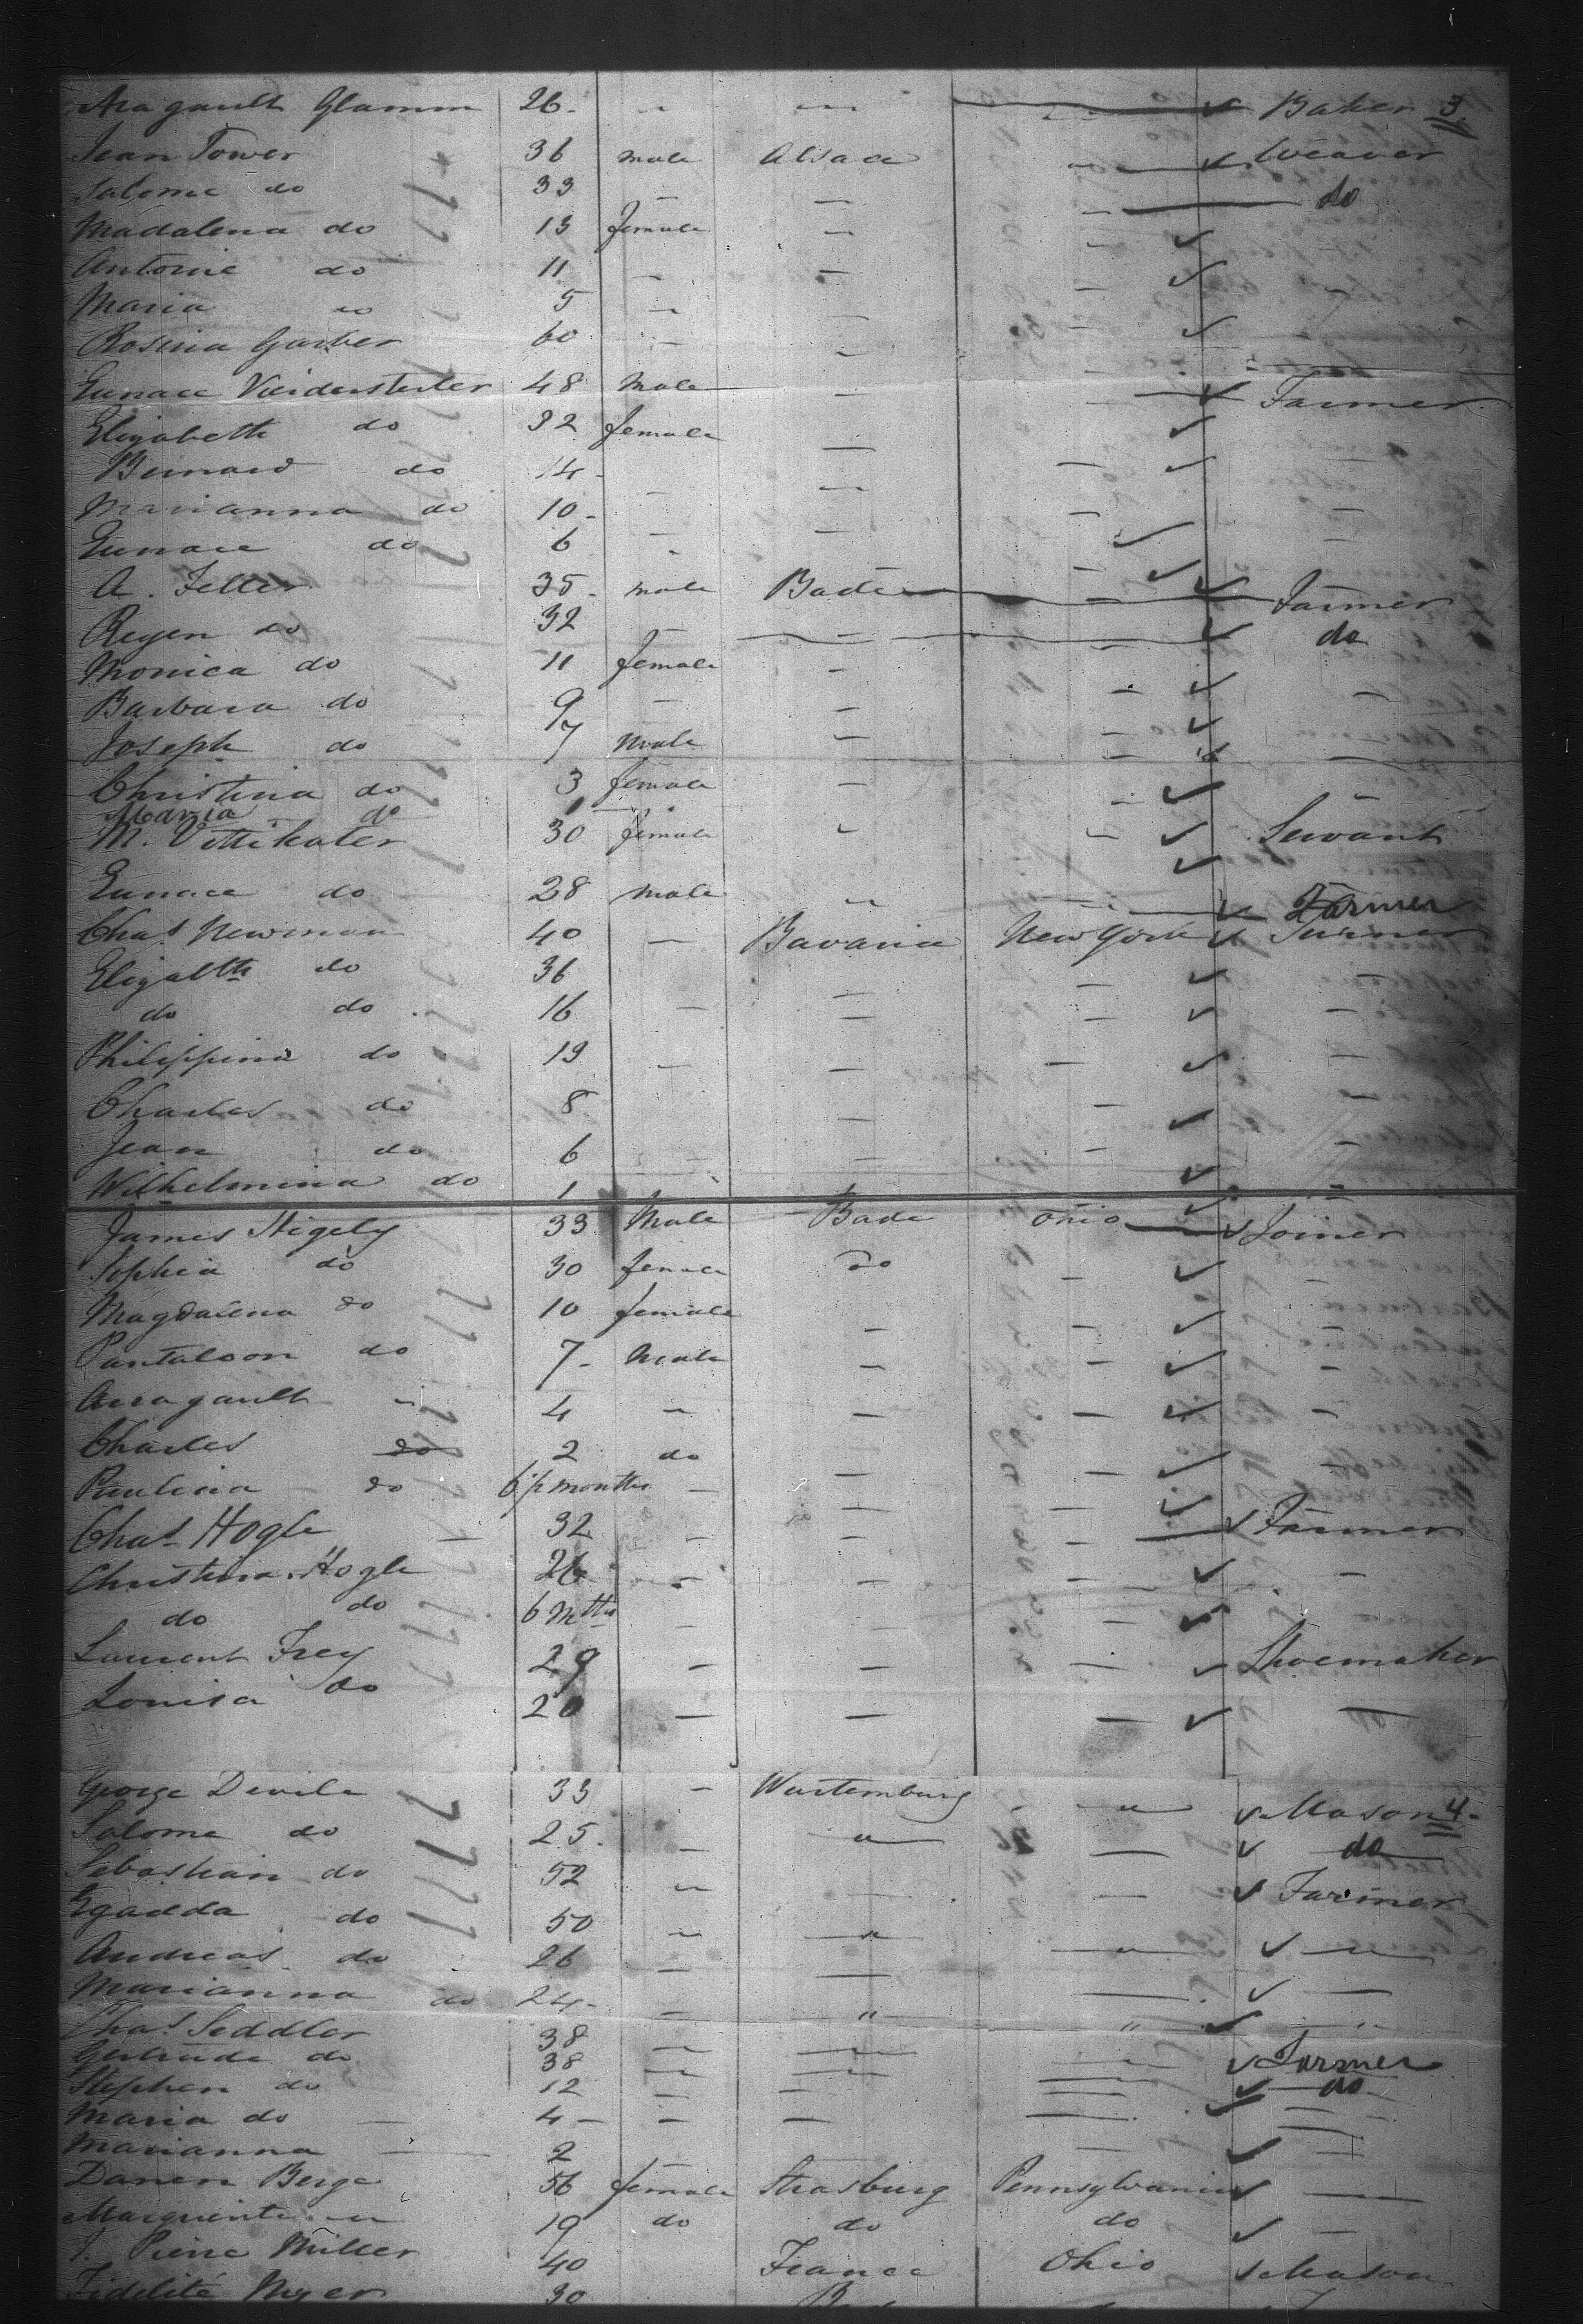 Aragault Glamm 26 - " " Baker 3
Jean Tower 36 male Alsace " Weaver
Salome do 33 - - - do
Madalena do 13 female - -
Antoine do 11 - - -
Maria do 5 - - -
Rosina Garber 60 - - -
Eunace 48 Male - - Farmer
Elizabeth do 32 female -
Bernard do 14 - - -
Marianna do 10 - - - -
Eunace do 6 - - -
A. Feller 35 - male Bade - Farmer
Regen do 32 - - - do
Monica do 11 female - -
Barbara do 9 - - -
Joseph do 7 Male - -
Christina do 3 female - -
Maria do 1
M. Vittikater 30 female " - Servant
Eunace do 28 male " - Farmer
Chas Newman 40 - Bavaria New York Turner
Elizabth do 36 - - -
do do 16 - - - -
Philippina do 19 - - - -
Charles do 8 - - -
Jean do 6 - - - -
Wilhelmina do 1
James Higely 33 Male Bade Ohio Joiner
Sophia do 30 female do -
Magdalena do 10 female - -
Pantaloon do 7 - Male - - -
Arragault " 4 " - - -
Charles do 2 do - - -
Paulina do 6 1/2 months - -
Chas Hogle 32 - - - Farmer
Christina Hogle 26 - - - -
do do 6 Mths - - -
Laurent Frey 29 - - - Shoemaker
Louisa do 20 - - - -
George Devile 33 - Wurtemburg " Mason 4
Salome do 25 - " - do
Sebastian do 52 " - - Farmer
Egadda do 50 " " " "
Andreas do 26 - - - -
Marianna do 24 - - " " "
Chas Seddler 38 - - - Farmer
Gertrude do 38 - - - do
Stephen do 12 - - - -
Maria do 4 - - - -
Marianna 2 - -
Danen Berge 56 female Strasburg Pennsylvania -
Marguerite " 19 do do do -
J. Pierre Miller 40 France Ohio Mason
Fidelité Myer 30